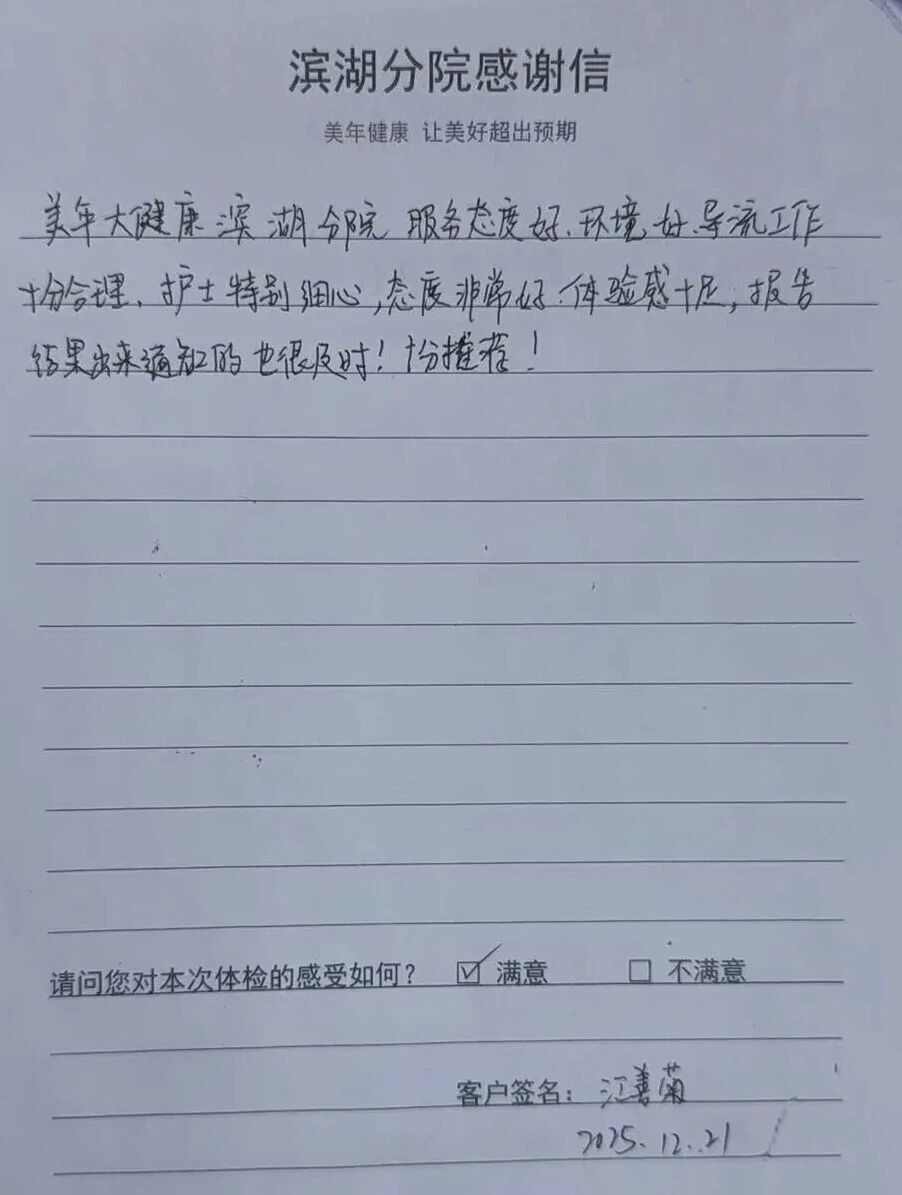 滨湖分院感谢信
美年健康 让美好超出预期
美年大健康滨湖分院 服务态度好、环境好、导流工作
十分合理、护士特别细心,态度非常好.体验感十足,报告
结果出来通知的也很及时!十分推荐!
请问您对本次体检的感受如何? ☑ 满意 □ 不满意
客户签名:江善菊
2025.12.21